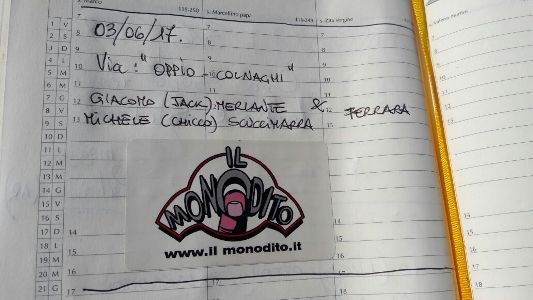 S. Marco 115-250 S. Marcellino papa 116-249 S. Zita vergine
03/06/17.
Via: " OPPIO - COLNAGHI "
GIACOMO (JACK) MERLANTE & FERRARA
MICHELE (CHICCO) SCUCCIMARRA
IL
MONODITO
www.il monodito.it
1 V
2 S
3 D
4 L
5 M
6 M
7 G
8 V
9 S
10 D
11 L
12 M
13 M
14 G
15 V
16 S
17 D
18 L
19 M
20 M
21 G
7
8
9
10
11
12
13
14
15
16
17
14
15
16
17
18